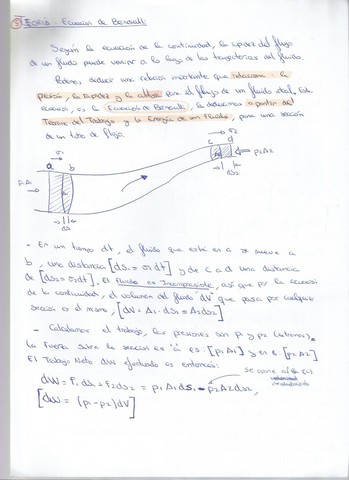 ③ TEORIA - Ecuación de Bernoulli
Según la ecuación de la continuidad, la rapidez del flujo
de un fluido puede variar a lo largo de las trayectorias del fluido.
Podemos deducir una relación importante que relacione la
presión, la rapidez y la altura para el flujo de un fluido ideal. Esta
ecuación, es la Ecuación de Bernoulli, la deducimos a partir del
Teorema del Trabajo y la Energía de un Fluido, para una sección
de un tubo de flujo.
c d
p2A2
dS2
a b
p1A1
dS1
- En un tiempo dt, el fluido que está en a se mueve a
b, una distancia [dS1 = v1dt] y de c a d una distancia
de [dS2 = v2dt]. El Fluido es Incompresible, así que por la ecuación
de la continuidad, el volumen del fluido dV que pasa por cualquier
sección es el mismo, [dV = A1·dS1 = A2dS2]
- Calculamos el trabajo, las presiones son p1 y p2
La Fuerza sobre la sección es 'a' es: [p1A1] y en c [p2A2]
El Trabajo Neto dW efectuado es entonces:
se opone al
dW = F1dS1 + F2dS2 = p1A1dS1 - p2A2dS2,
[dW = (p1-p2)dV]